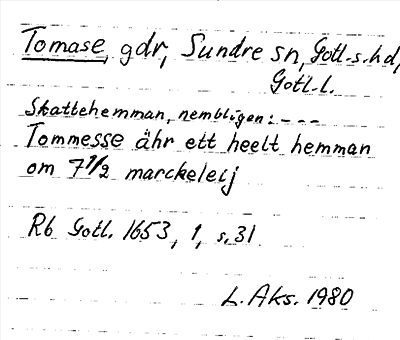 Tomase, gdr, Sundre sn, Gotl. s. hd,
Gotl. l.
Skattehemman, nembligen: - - -
Tommesse ähr ett heelt hemman
om 7 1/2 marckeleij
Rb Gotl. 1653, 1, s. 31
L. Aks. 1980